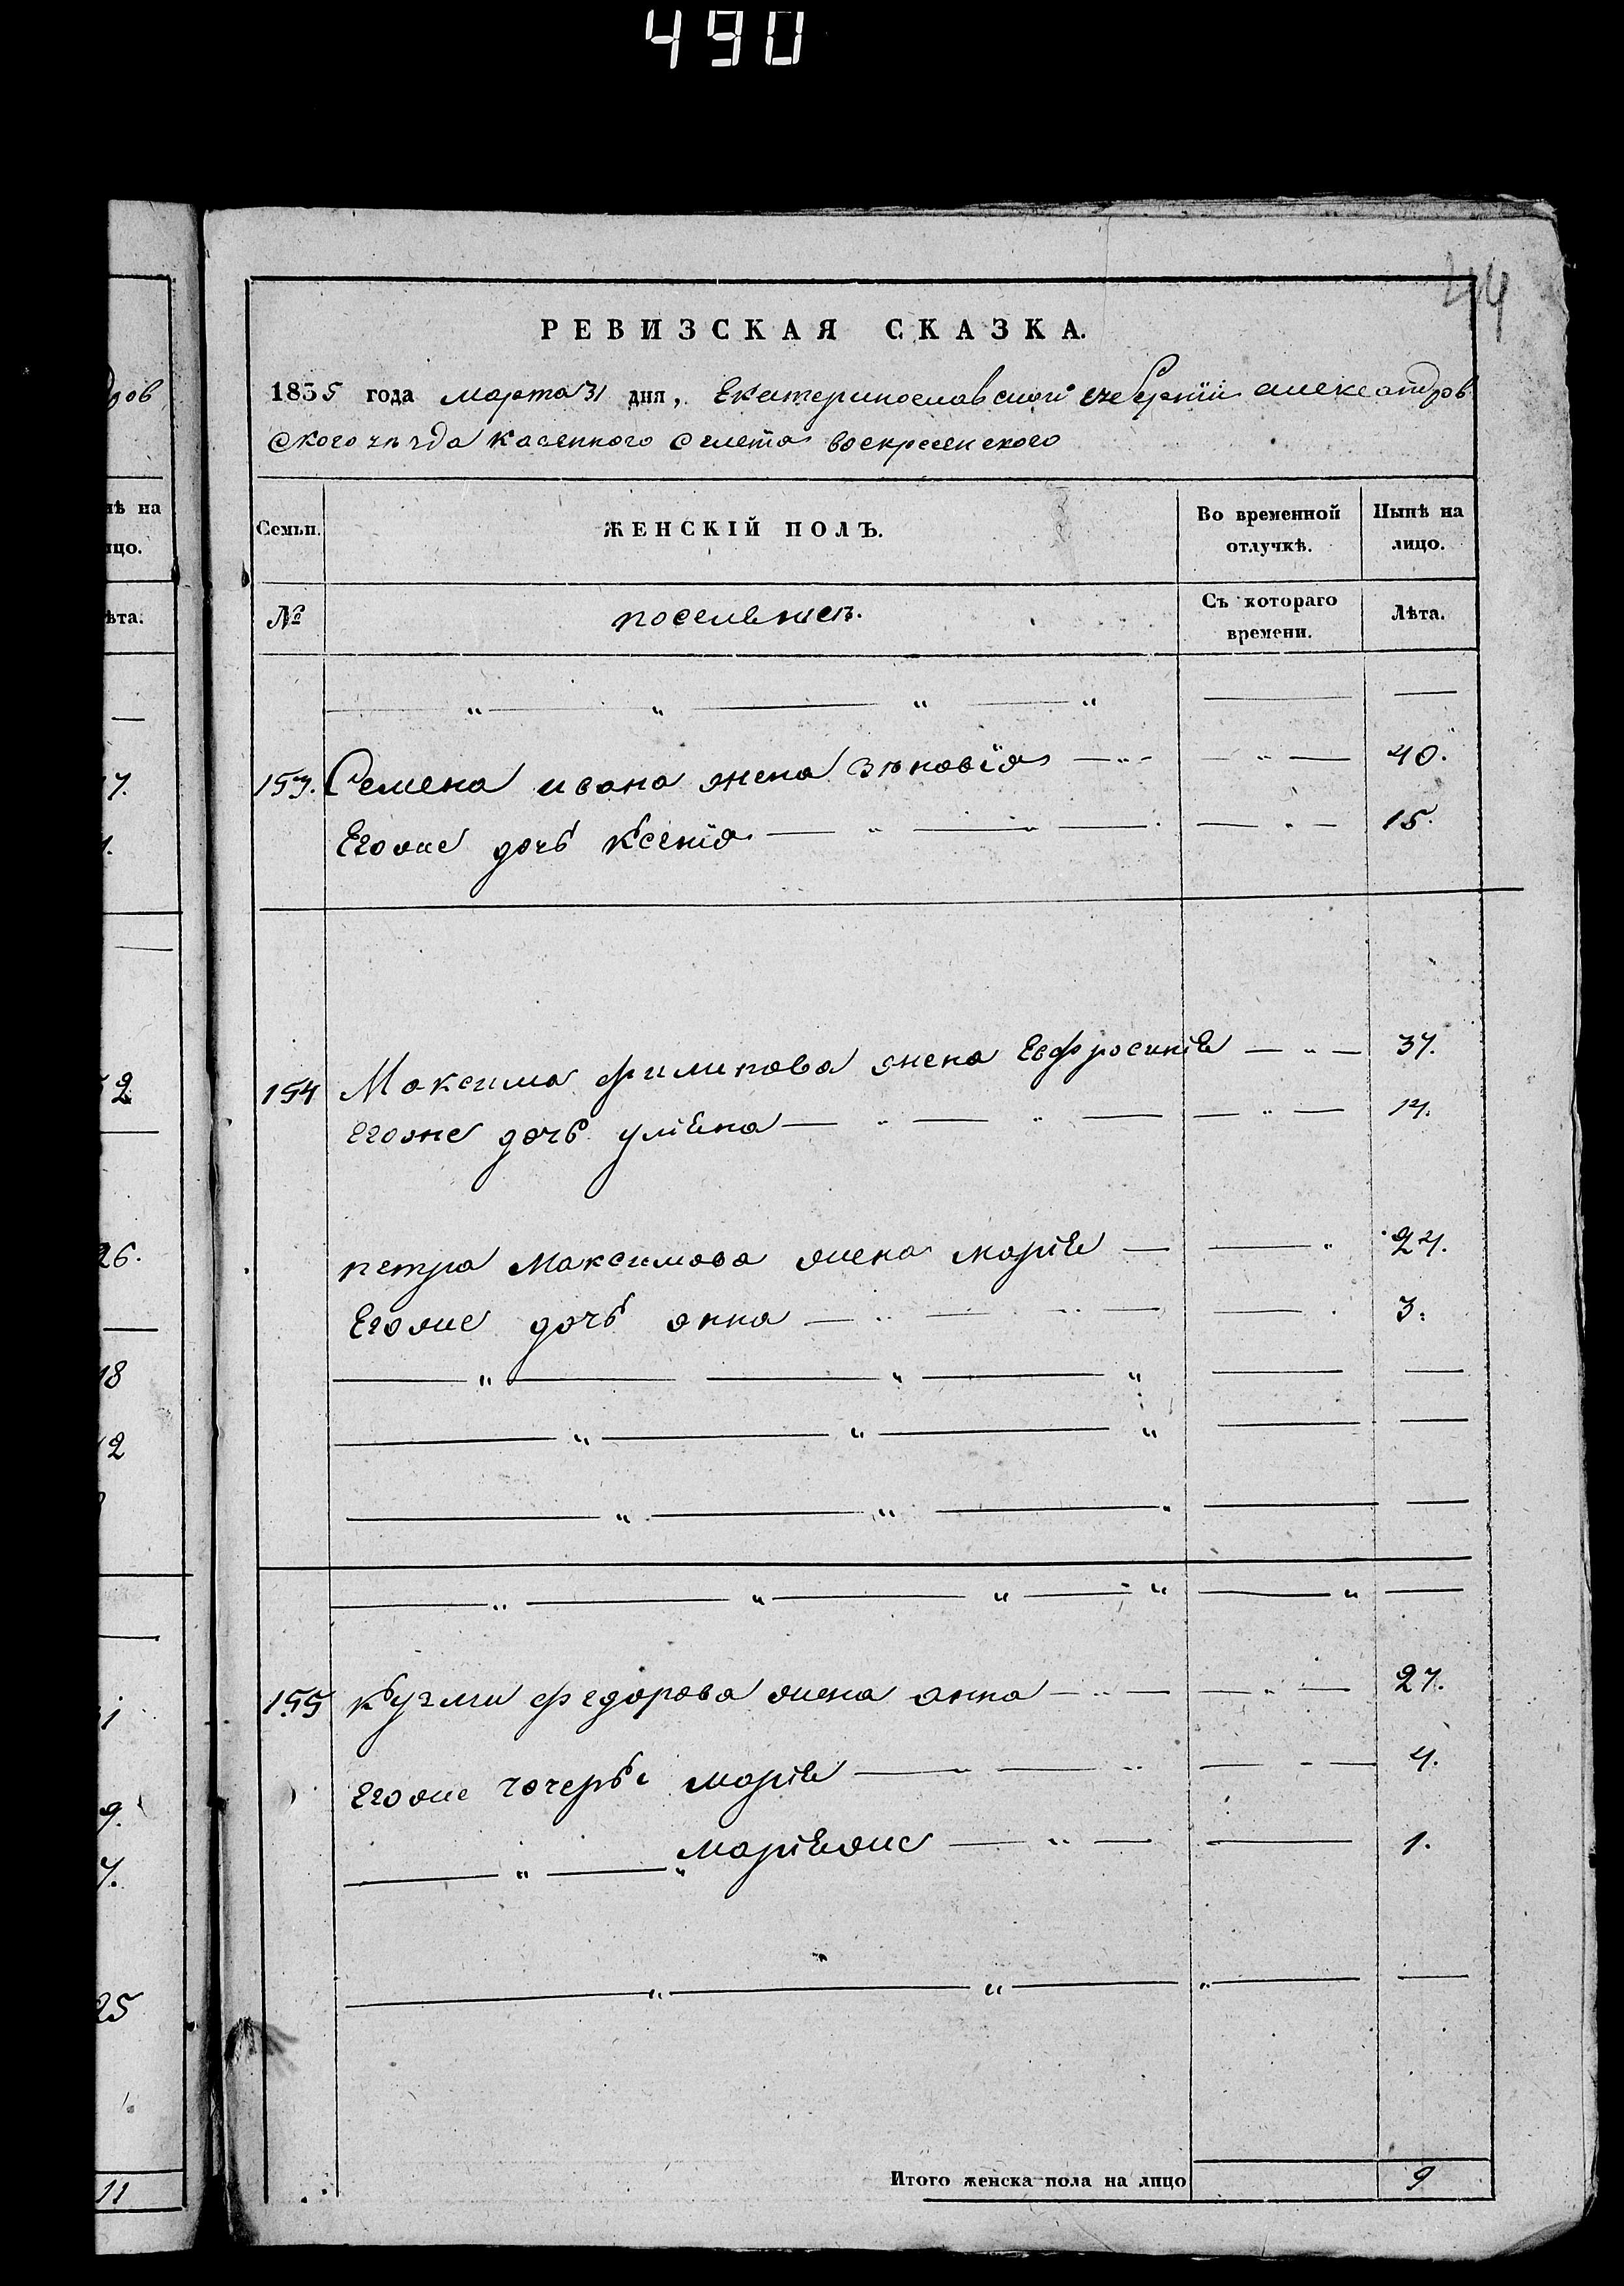 490
44
дров
РЕВИЗСКАЯ СКАЗКА.
1835 года марта 31 дня, Екатеринославской губернии александров
ского уезда казенного селения воскресенского
нѣ на
ицо.
Семьи.
ЖЕНСКІЙ ПОЛЪ.
Во временной отлучкѣ.
Нынѣ на лицо.
ѣта.
№
поселянъ.
Съ котораго времени.
Лѣта.
153. Семена ивана жена Зѣновія — „ — — „ — 40.
Егоже дочь Ксенія — „ — „ — — „ — 15.
154 Максима филипова жена Евфросиния — „ — 37.
Егоже дочь улияна — „ — „ — — „ — 14.
петра Максимова жена мария — — „ 24.
Егоже дочь анна — „ — „ — — . 3.
155 Кузми федорова жена анна — „ — — „ — 27.
Егоже дочери мария — „ — „ — „ — 4.
— „ — „ марияже — „ — — 1.
Итого женска пола на лицо 9
2
26.
18
12
9.
25
11